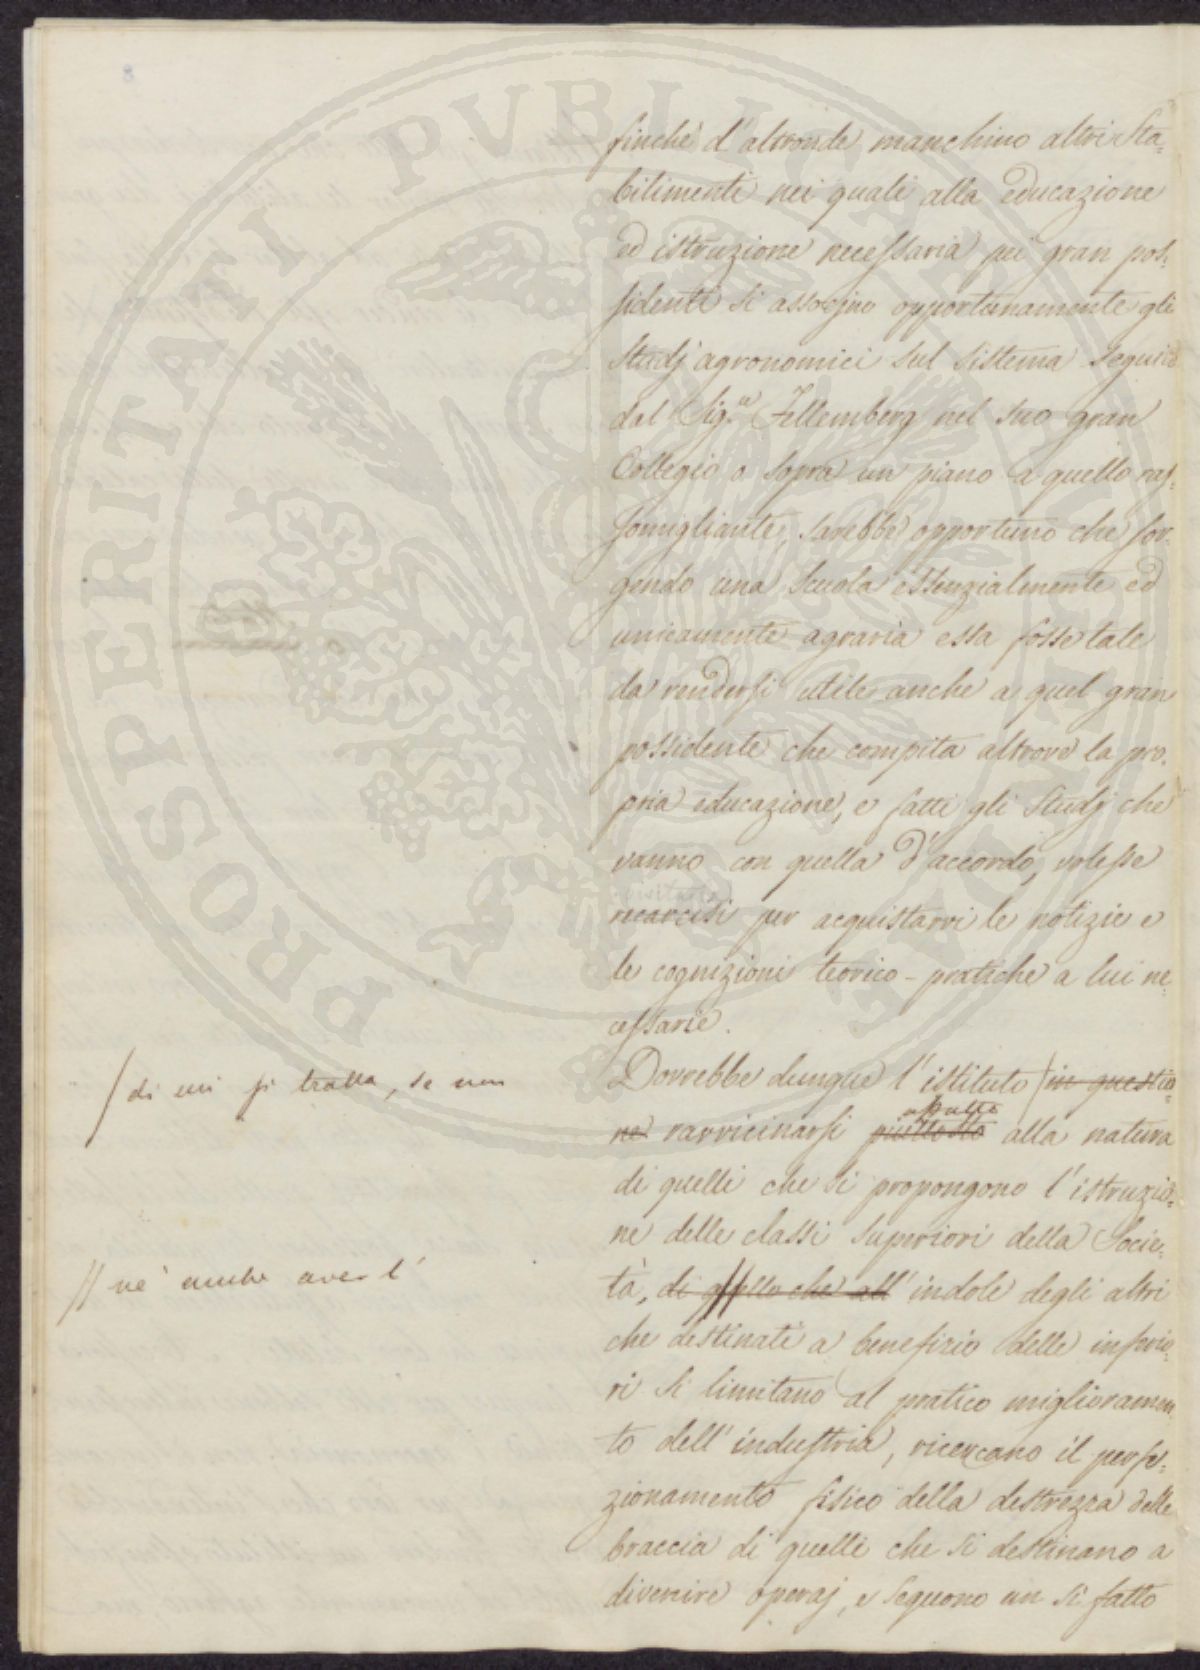 finchè d'altronde manchino altri Sta=
bilimenti nei quali alla educazione
ed istruzione necessaria pei gran pos=
sidenti si associno opportunamente gli
studj agronomici sul sistema seguito
dal Sig.r Fellemberg nel suo gran
Collegio o sopra un piano a quello ras=
somigliante, sarebbe opportuno che sor=
gendo una scuola essenzialmente ed
unicamente agraria essa fosse tale
da rendersi utile anche a quel gran
possidente che compita altrove la pro=
pria educazione, e fatti gli studj che
vanno con quella d'accordo, volesse
recarcisi per acquistarvi le notizie e
le cognizioni teorico-pratiche a lui ne=
cessarie.
Dovrebbe dunque l'istituto / in questio=
/ di cui si tratta, se non
ne ravvicinarsi piuttosto alla natura
di quelli che si propongono l'istruzio=
ne delle classi superiori della Socie=
tà, di quello che all'indole degli altri
// nè anche aver l'
che destinati a benefizio delle inferio=
ri si limitano al pratico miglioramen=
to dell'industria, ricercano il perfe=
zionamento fisico della destrezza delle
braccia di quelli che si destinano a
divenire operaj, e seguono un sì fatto
PROSPERITATI PVBLICAE AVGENDAE